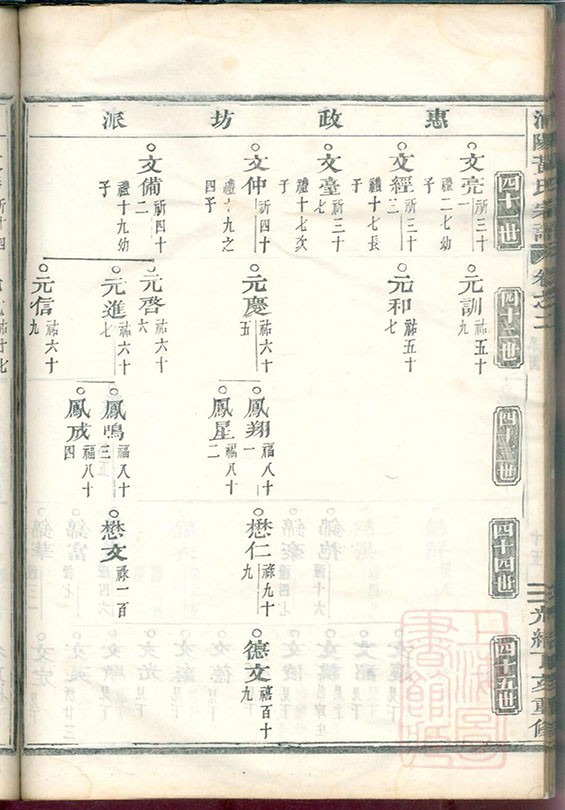 惠政坊派
四十一世
四十二世
四十三世
四十四世
四十五世
文亮 祈三十一
禮二七幼子
文經 祈三十三
禮十七長子
文臺 祈三十七
禮十七次子
文仲 祈四十
禮十九之四子
文備 祈四十二
禮十九幼子
元訓 祐五十九
元和 祐五十七
元慶 祐六十五
元啓 祐六十六
元進 祐六十七
元信 祐六十九
鳳翔 福八十一
鳳星 福八十二
鳳鳴 福八十三
鳳成 福八十四
懋仁 祿九十九
懋文 祿一百
德文 禧百十九
氏宗譜 卷之二
光緒丁亥重修
上海圖書館藏